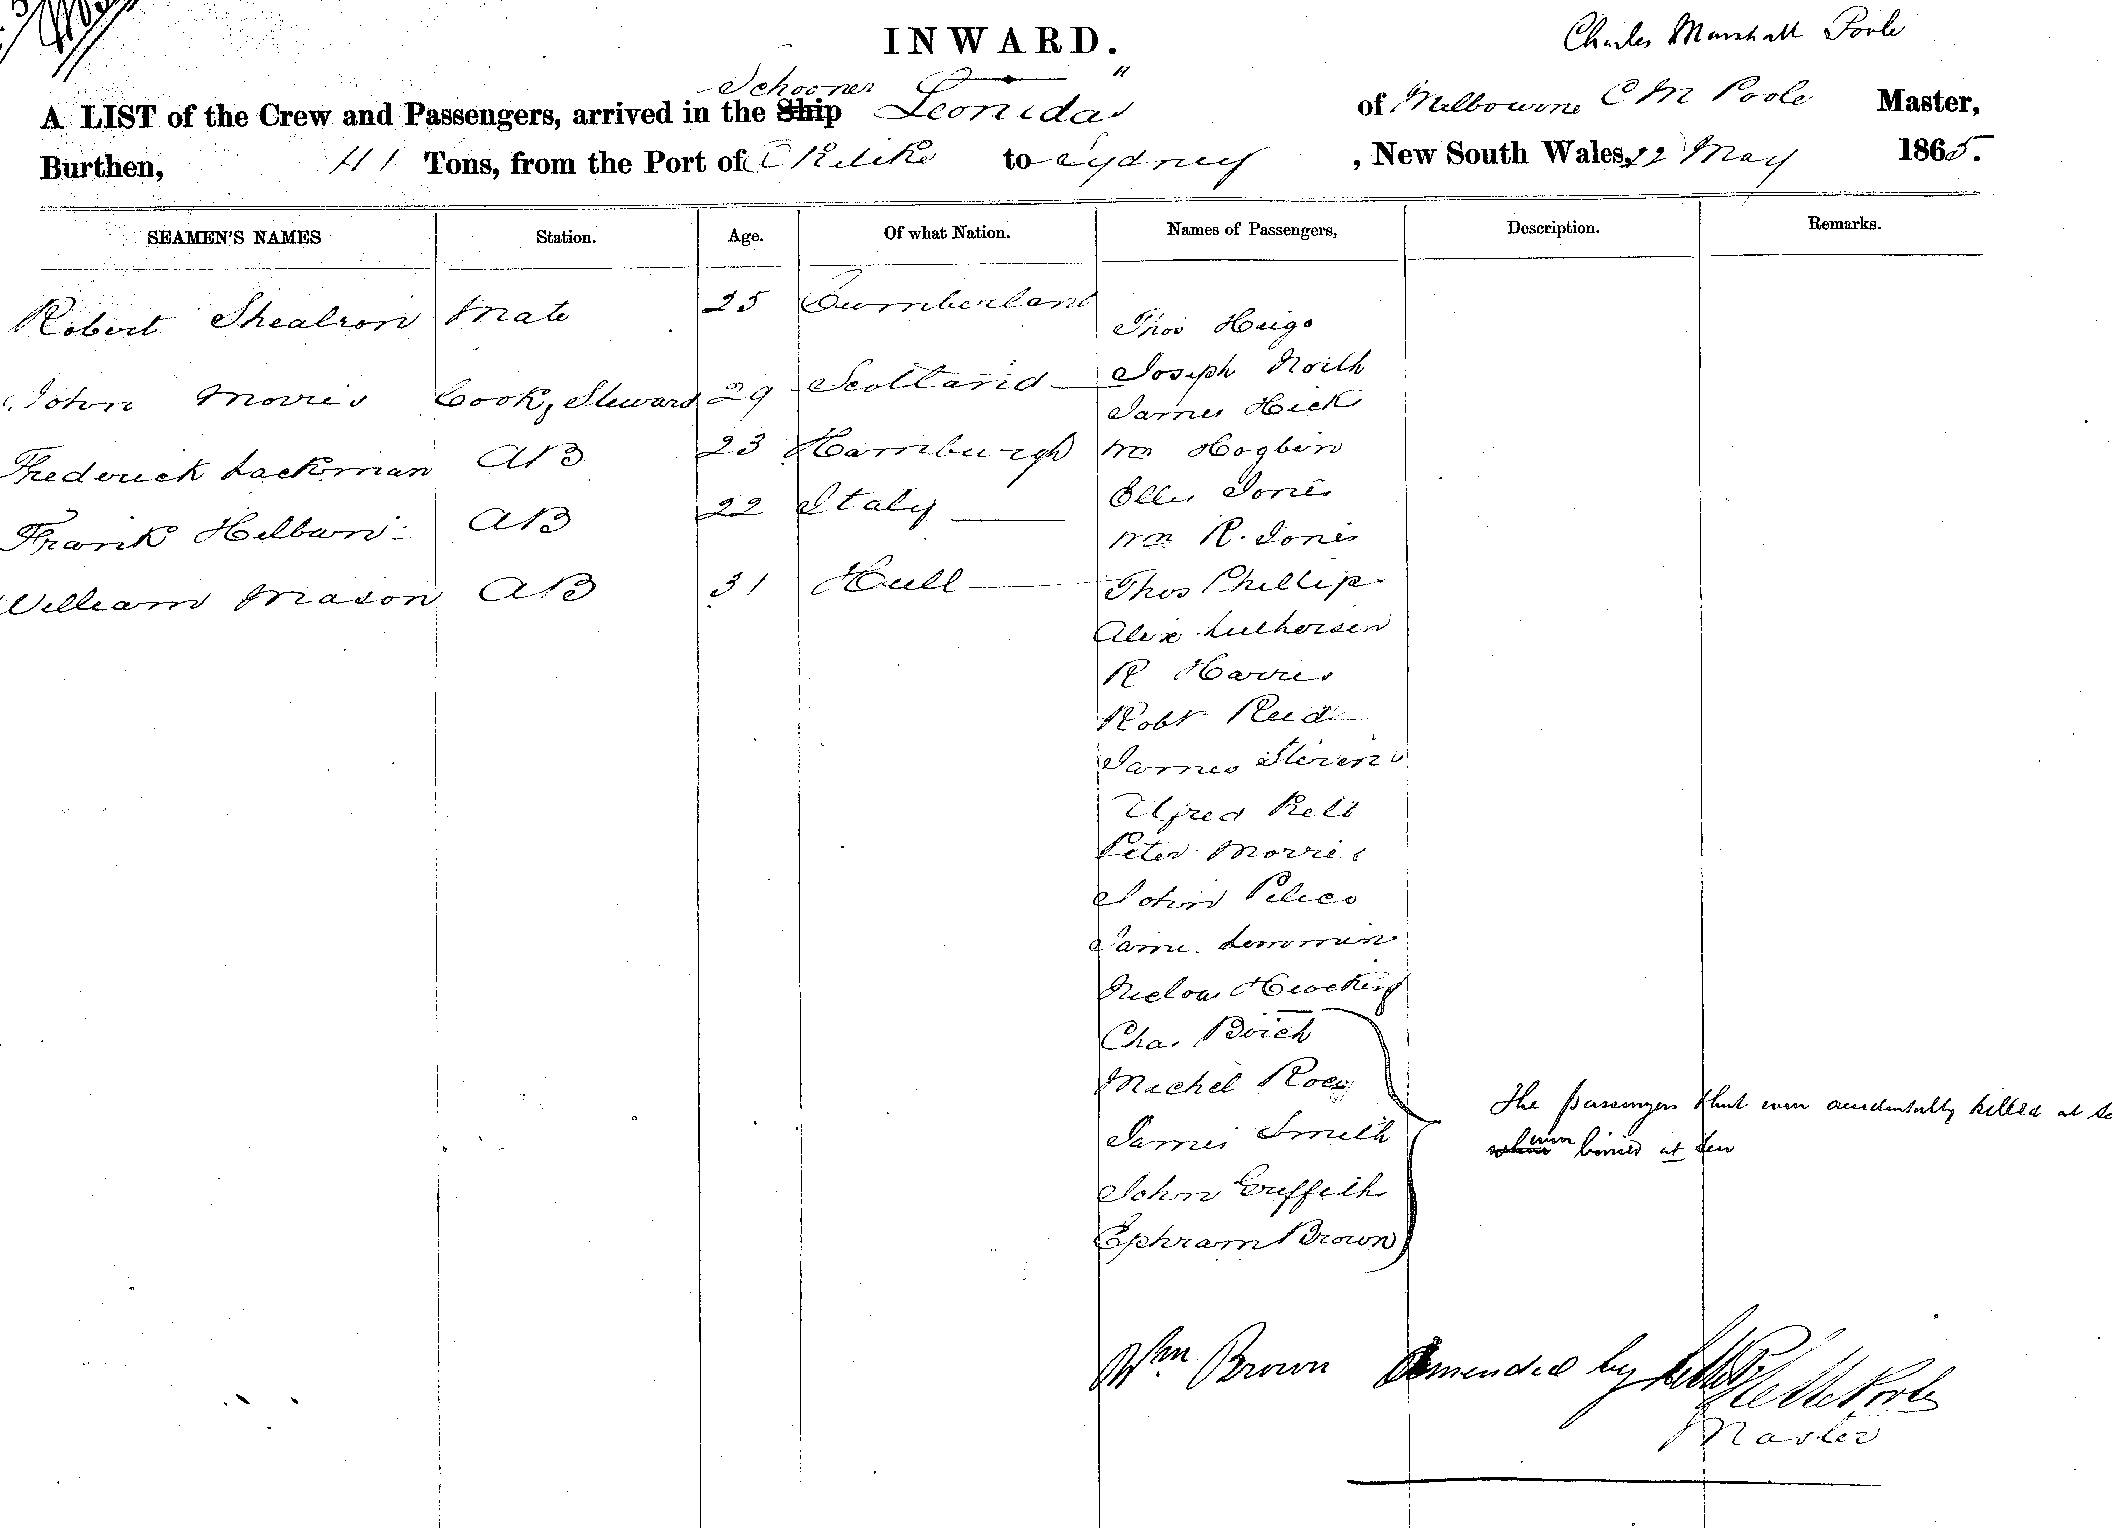 INWARD.
Charles Marshall Poole
Schooner
A LIST of the Crew and Passengers, arrived in the Ship "Leonidas" of Melbourne C M Poole Master,
Burthen, Tons, from the Port of to Sydney, New South Wales, 22 May 1865.
SEAMEN'S NAMES Station. Age. Of what Nation. Names of Passengers, Description. Remarks.
Robert Mate 25 Cumberland
Thos Haigo
John Morris Cook, Steward 29 Scotland
Joseph North
James Hick
Frederick Lackman AB 23 Hamburgh
Wm Hogbin
Frank AB 22 Italy
Ellis Jones
Wm R. Jones
William Mason AB 31 Hull
Thos Phillip
Alex
R Harris
Robt Reid
James Stevens
Alfred
Peter Morris
John
Hocking
Chas.
Michel
James Smith
John Griffith
Ephram Brown
The passengers that were accidentally killed at
were buried at Sea
Wm Brown Amended by
C M Poole
Master